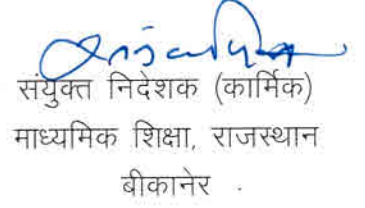 संयुक्त निदेशक (कार्मिक)
माध्यमिक शिक्षा, राजस्थान
बीकानेर .